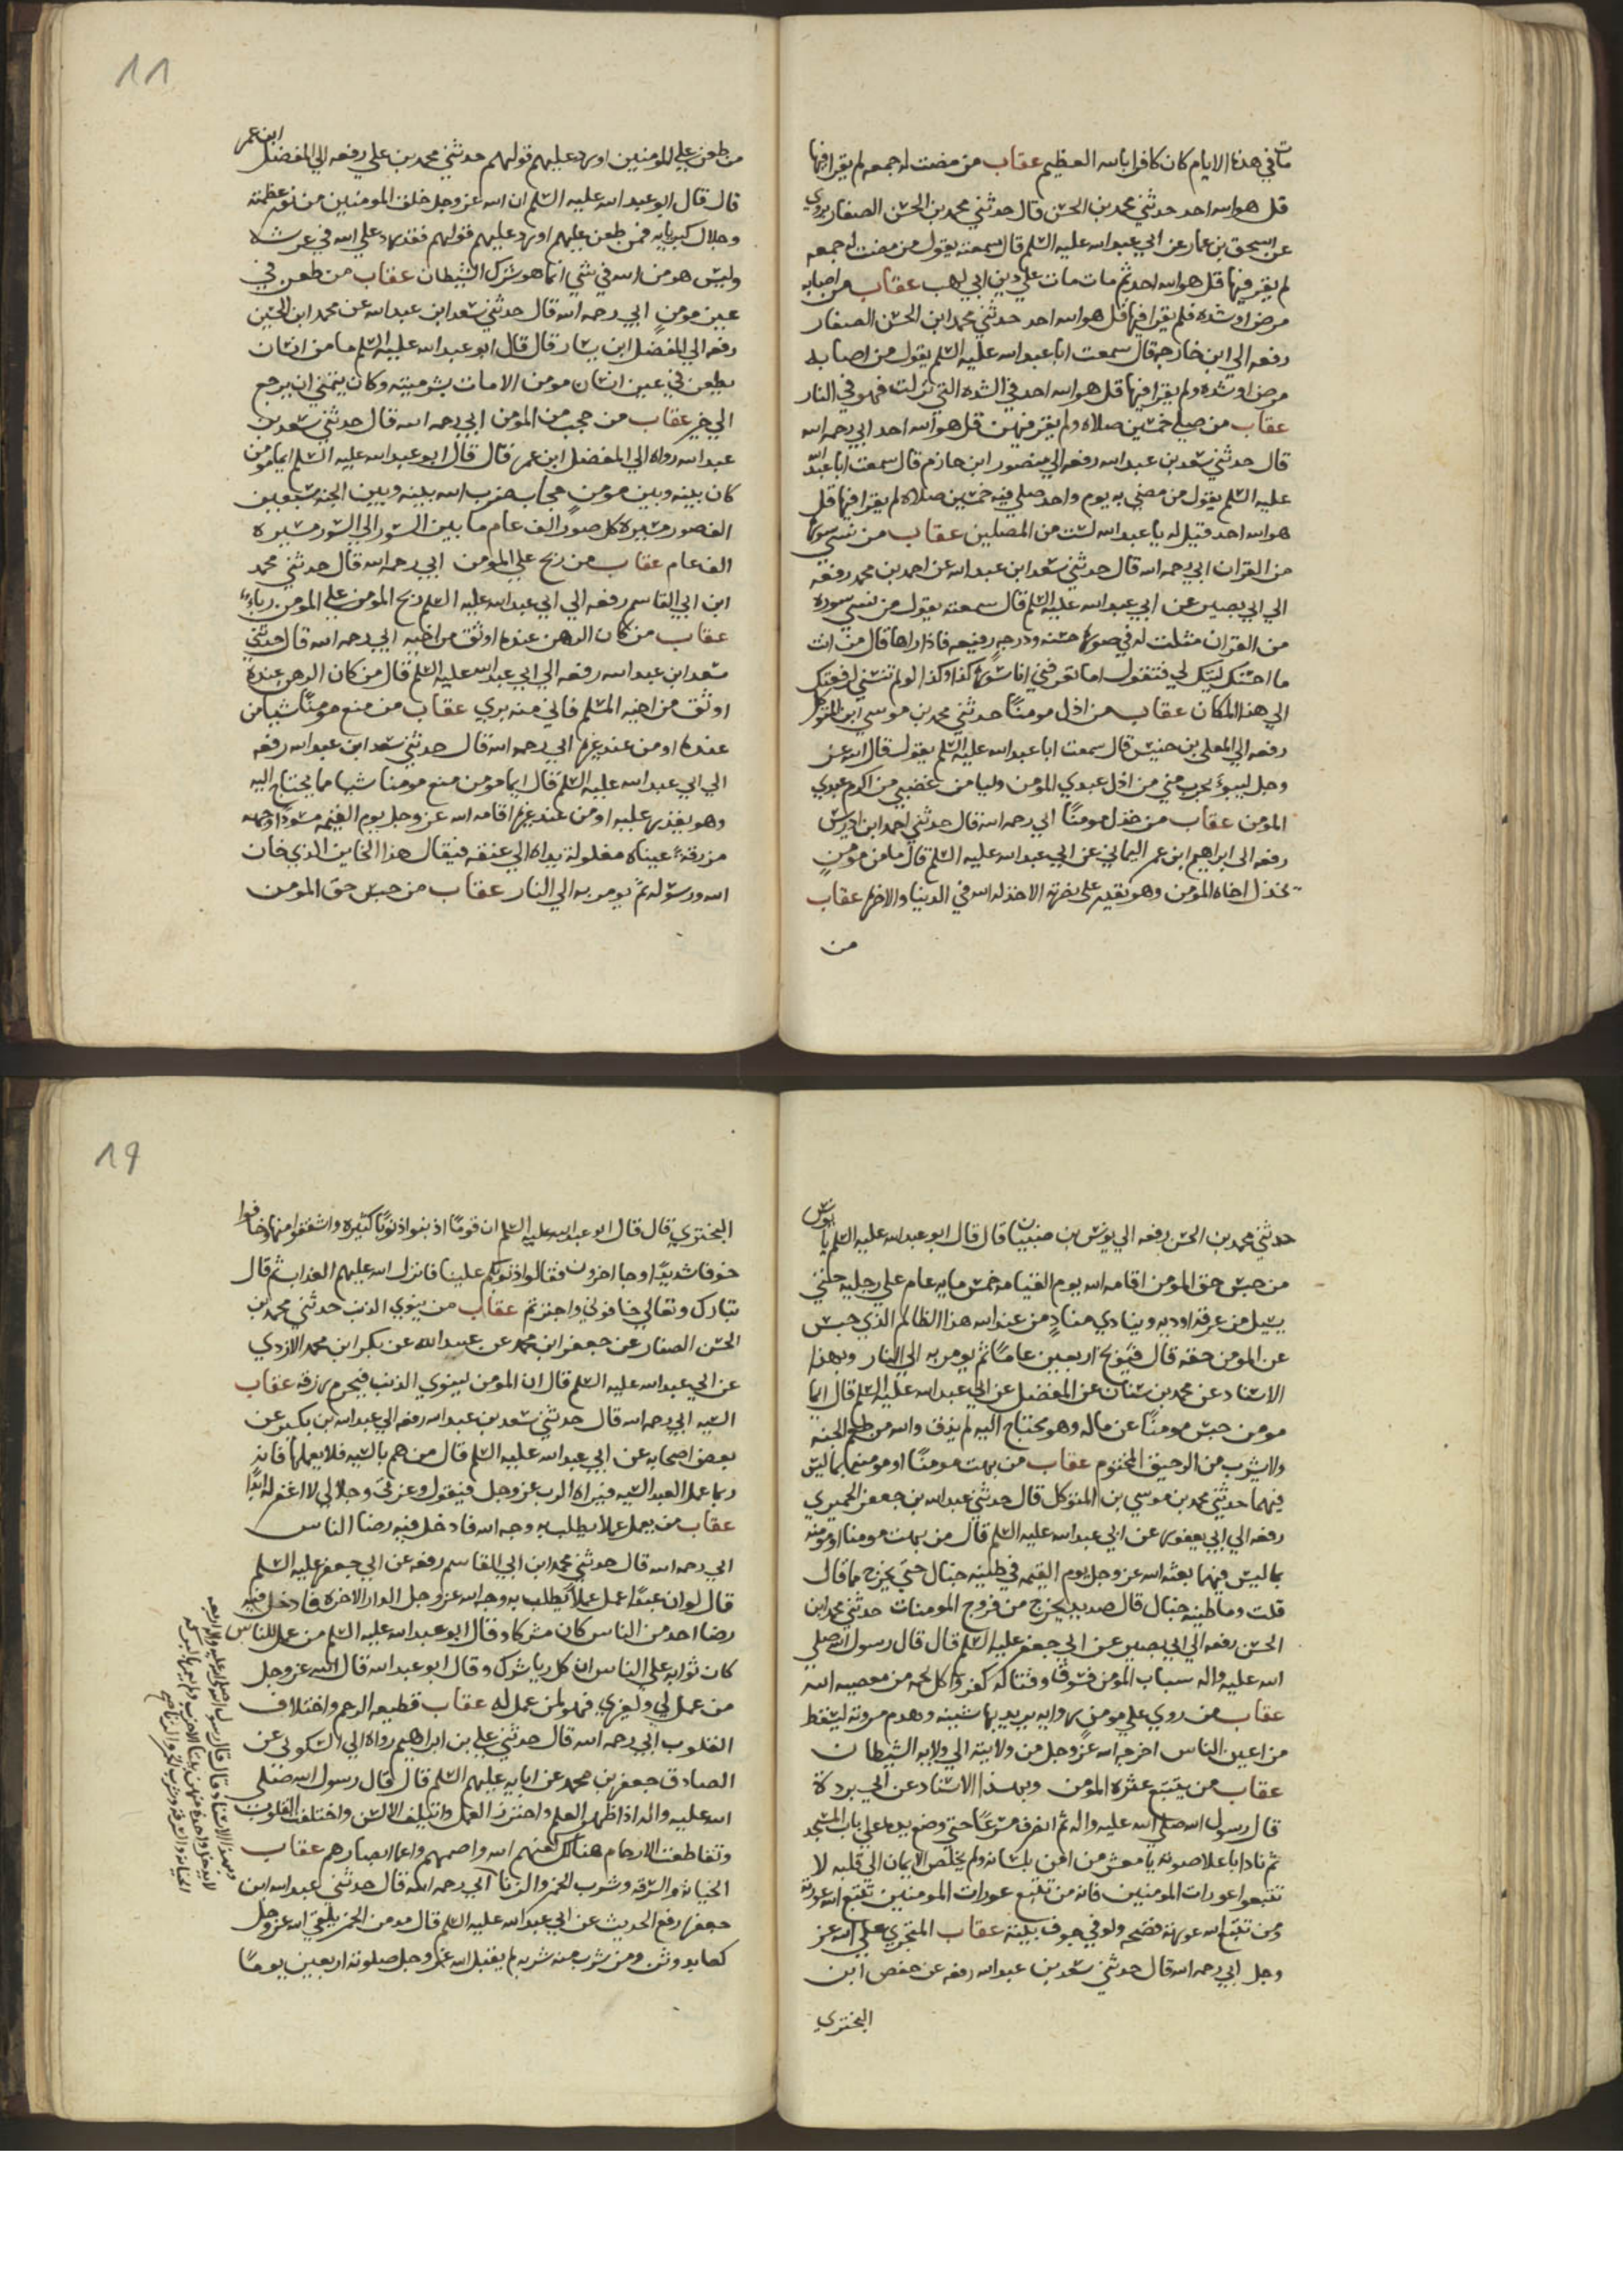 مات في هذه الايام كان كافرا بالله العظيم عقاب من مضت له جمعه لم يقرا فيها
قل هو الله احد حدثني محمد بن الحسن قال حدثني محمد بن الحسن الصفار يروي
عن اسحق بن عمار عن ابي عبد الله عليه السلم قال سمعته يقول من مضت له جمعه
لم يقر فيها قل هو الله احد ثم مات مات علي دين ابي لهب عقاب من اصابه
مرض او شده فلم يقرا فيها قل هو الله احد حدثني محمد ابن الحسن الصفار
رفعه الي ابن خارجه قال سمعت ابا عبد الله عليه السلم يقول من اصابه
مرض او شده ولم يقرا فيها قل هو الله احد في الشده التي نزلت فهو في النار
عقاب من صلي خمسين صلاه ولم يقر فيهن قل هو الله احد ابي رحمه الله
قال حدثني سعد بن عبد الله رفعه الي منصور ابن حازم قال سمعت ابا عبد الله
عليه السلم يقول من مضي به يوم واحد صلي فيه خمسين صلاه لم يقرا فيها قل
هو الله احد قيل له يا عبد الله لست من المصلين عقاب من نسي سورة
من القران ابي رحمه الله قال حدثني سعد ابن عبد الله عن احمد بن محمد رفعه
الي ابي بصير عن ابي عبد الله عليه السلم قال سمعته يقول من نسي سورة
من القران مثلت له في صورة حسنه ودرجه رفيعه فاذا راها قال من انت
ما احسنك ليتك لي فتقول اما تعرفني انا سورة كذا وكذا لو لم تنسني لرفعتك
الي هذا المكان عقاب من اذل مومناً حدثني محمد بن موسي ابن المتوكل
رفعه الي المعلي بن خنيس قال سمعت ابا عبد الله عليه السلم يقول قال الله عز
وجل ليبوء بحرب مني من اذل عبدي المومن وليامن غضبي من اكرم عبدي
المومن عقاب من خذل مومناً ابي رحمه الله قال حدثني احمد ابن ادريس
رفعه الي ابراهيم ابن عمر اليماني عن ابي عبد الله عليه السلم قال ما من مومن
يخذل اخاه المومن وهو يقدر علي نصرته الا خذله الله في الدنيا والاخرة عقاب
من
11
من طعن علي المومنين او رد عليهم قولهم حدثني محمد بن علي رفعه الي المفضل ابن عمر
قال قال ابو عبد الله عليه السلم ان الله عز وجل خلق المومنين من نور عظمته
وجلال كبريايه فمن طعن عليهم او رد عليهم قولهم فقد رد علي الله في عرشه
وليس هو من الله في شي انما هو شرك الشيطان عقاب من طعن في
عين مومن ابي رحمه الله قال حدثني سعد ابن عبد الله عن محمد ابن الحسين
رفعه الي المفضل ابن يسار قال قال ابو عبد الله عليه السلم ما من انسان
يطعن في عين انسان مومن الا مات بشر ميته وكان يتمني ان يرجع
الي خير عقاب من حجب من المومن ابي رحمه الله قال حدثني سعد بن
عبد الله رواه الي المفضل ابن عمر قال قال ابو عبد الله عليه السلم ايما مومن
كان بينه وبين مومن حجاب ضرب الله بينه وبين الجنه سبعين
الف صور مسيرة كل صور الف عام ما بين السور الي السور مسيرة
الف عام عقاب من ربح علي المومن ابي رحمه الله قال حدثني محمد
ابن ابي القاسم رفعه الي ابي عبد الله عليه السلم ربح المومن علي المومن رباء
عقاب من كان الرهن عنده اوثق من اخيه ابي رحمه الله قال حدثني
سعد ابن عبد الله رفعه الي ابي عبد الله عليه السلم قال من كان الرهن عنده
اوثق من اخيه المسلم فاني منه بري عقاب من منع مومناً شيا من
عنده او من عند غيره ابي رحمه الله قال حدثني سعد ابن عبد الله رفعه
الي ابي عبد الله عليه السلم قال ايما مومن منع مومنا شيا مما يحتاج اليه
وهو يقدر عليه او من عند غيره اقامه الله عز وجل يوم القيمه مسوداً وجهه
مزرقة عيناه مغلولة يداه الي عنقه فيقال هذا الخاين الذي خان
الله ورسوله ثم يومر به الي النار عقاب من حبس حق المومن
حدثني محمد بن الحسن رفعه الي يونس بن ضبيان قال قال ابو عبد الله عليه السلم يا يونس
من حبس حق المومن اقامه الله يوم القيامه خمس مايه عام علي رجليه حتي
يسيل من عرقه اوديه وينادي منادٍ من عند الله هذا الظالم الذي حبس
عن المومن حقه قال فيوبخ اربعين عاماً ثم يومر به الي النار وبهذا
الاسناد عن محمد بن سنان عن المفضل عن ابي عبد الله عليه السلم قال ايما
مومن حبس مومناً عن ماله وهو محتاج اليه لم يذق والله من طعم الجنه
ولا يشرب من الرحيق المختوم عقاب من بهت مومناً او مومنه بما ليس
فيهما حدثني محمد بن موسي بن المتوكل قال حدثني عبد الله بن جعفر الحميري
رفعه الي ابي يعفور عن ابي عبد الله عليه السلم قال من بهت مومنا او مومنه
بما ليس فيهما بعثه الله عز وجل يوم القيمه في طينه خبال حتي يخرج مما قال
قلت وما طينه خبال قال صديد يخرج من فروج المومنات حدثني محمد ابن
الحسن رفعه الي ابي بصير عن ابي جعفر عليه السلم قال قال رسول الله صلي
الله عليه واله سباب المومن فسوق وقتاله كفر واكل لحمه من معصيه الله
عقاب من روي علي مومن روايه يريد بها شينه وهدم مروته ليسقط
من اعين الناس اخرجه الله عز وجل من ولايته الي ولايه الشيطان
عقاب من يتبع عثرة المومن وبهذا الاسناد عن ابي بردة
قال رسول الله صلي الله عليه واله ثم انصرف مسرعاً حتي وضع يده علي باب المسجد
ثم نادا باعلا صوته يا معشر من امن بلسانه ولم يخلص الايمان الي قلبه لا
تتبعوا عورات المومنين فانه من تتبع عورات المومنين تتبع الله عورته
ومن تتبع الله عورته فضحه ولو في جوف بيته عقاب المتجري علي الله عز
وجل ابي رحمه الله قال حدثني سعد بن عبد الله رفعه عن حفص ابن
البختري
19
البختري قال قال ابو عبد الله عليه السلم ان قوماً اذنبوا ذنوباً كثيره واشفقوا منها وخافوا
خوفا شديداً وجا اخرون فقالوا ذنوبكم علينا فانزل الله عليهم العذاب ثم قال
تبارك وتعالي خافوني واجترتم عقاب من ينوي الذنب حدثني محمد بن
الحسن الصفار عن جعفر ابن محمد عن عبيد الله عن بكر ابن محمد الازدي
عن ابي عبد الله عليه السلم قال ان المومن لينوي الذنب فيحرم رزقه عقاب
السيه ابي رحمه الله قال حدثني سعد بن عبد الله رفعه الي عبد الله بن بكير عن
بعض اصحابه عن ابي عبد الله عليه السلم قال من هم بالسيه فلا يعملها فانه
ربما عمل العبد السيه فيراه الرب عز وجل فيقول وعزتي وجلالي لا اغفر له ابداً
عقاب من يعمل عملا يطلب به وجه الله فادخل فيه رضا الناس
ابي رحمه الله قال حدثني محمد ابن ابي القاسم رفعه عن ابي جعفر عليه السلم
قال لو ان عبداً عمل عملاً يطلب به وجه الله عز وجل الدار الاخره فادخل فيه
رضا احد من الناس كان مشركا وقال ابو عبد الله عليه السلم من عمل للناس
كان ثوابه علي الناس ان كل ريا شرك وقال ابو عبد الله قال الله عز وجل
من عمل لي ولغيري فهو لمن عمل له عقاب قطيعه الرحم واختلاف
القلوب ابي رحمه الله قال حدثني علي بن ابراهيم رواه الي السكوني عن
الصادق جعفر بن محمد عن ابايه عليهم السلم قال قال رسول الله صلي
الله عليه واله اذا ظهر العلم واحترز العمل وايتلف الالسن واختلفت القلوب
وتقاطعت الارحام هنالك لعنهم الله واصمهم واعما ابصارهم عقاب
الخيانه والسرقه وشرب الخمر والزنا ابي رحمه الله قال حدثني عبد الله ابن
جعفر رفع الحديث عن ابي عبد الله عليه السلم قال مدمن الخمر يلقي الله عز وجل
كعابد وثن ومن شرب منه شربه لم يقبل الله عز وجل صلوته اربعين يوماً
وبهذا الاسناد قال قال رسول الله صلي الله عليه واله اربعه
لا تدخل واحدة منهن بيتا الا خرب ولم يعمر بالبركه
الخيانه والسرقه وشرب الخمر والزنا